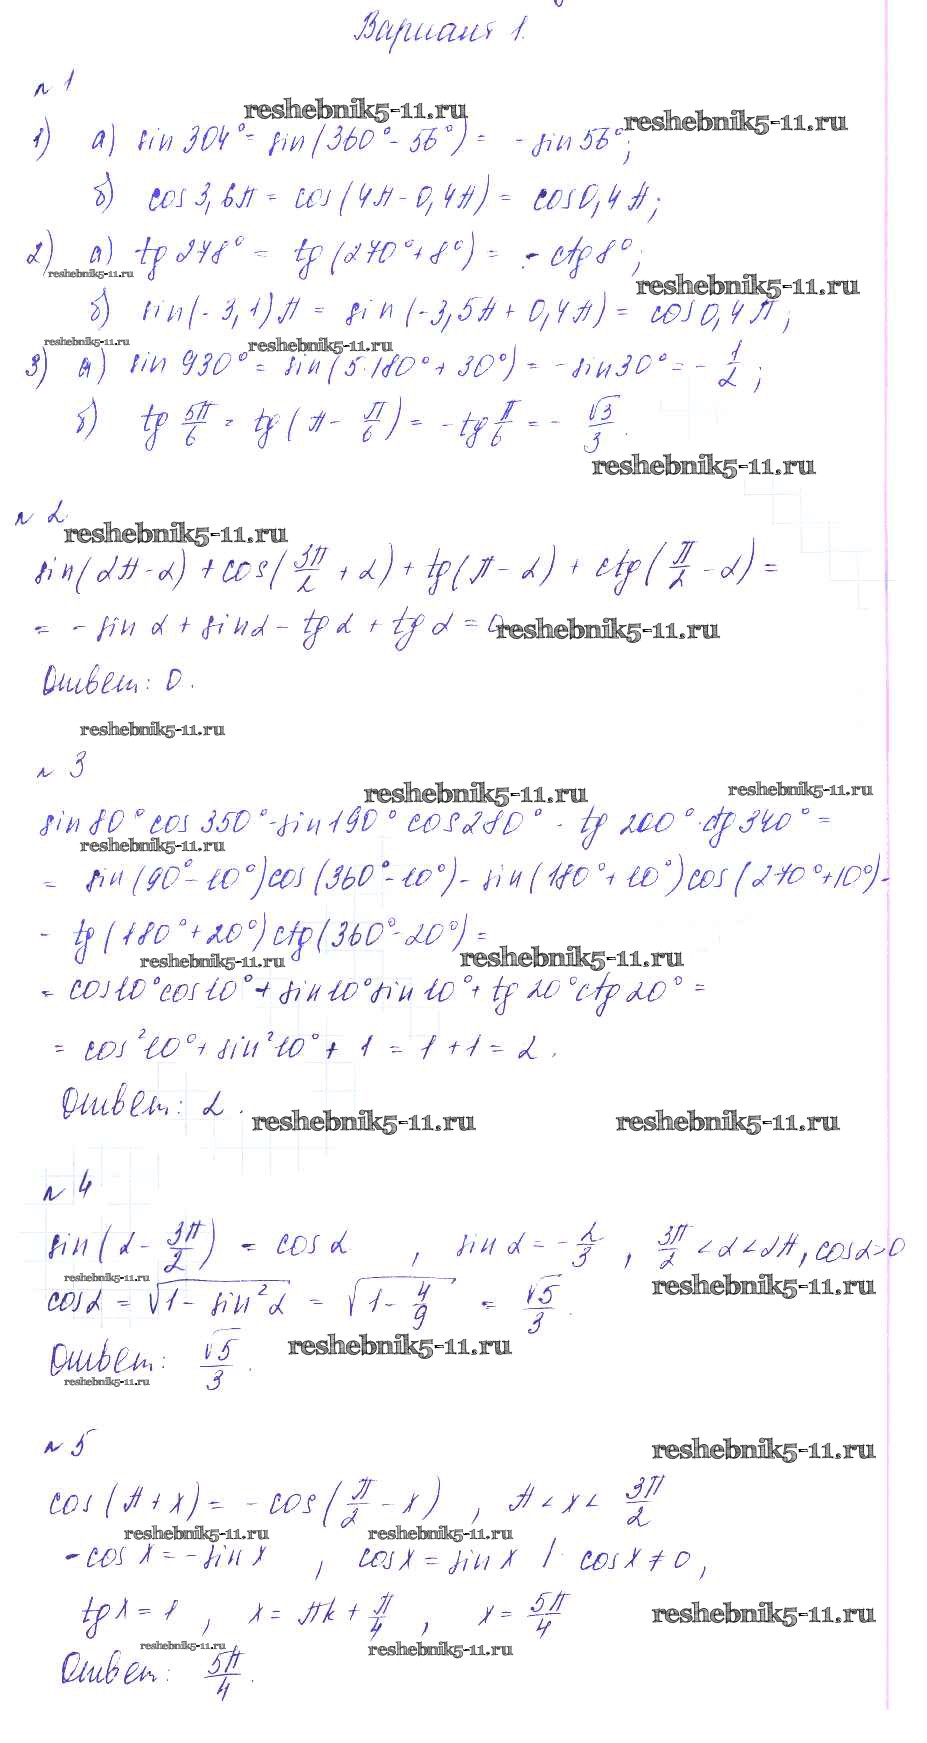 Вариант 1.
№ 1
reshebnik5-11.ru
1) а) sin 304° = sin(360° - 56°) = - sin 56°;
reshebnik5-11.ru
б) cos 3,6π = cos(4π - 0,4π) = cos 0,4π;
2) а) tg 278° = tg(270° + 8°) = - ctg 8°;
reshebnik5-11.ru
reshebnik5-11.ru
б) sin(-3,1)π = sin(-3,5π + 0,4π) = cos 0,4π;
reshebnik5-11.ru
reshebnik5-11.ru
3) а) sin 930° = sin(5·180° + 30°) = - sin 30° = - 1/2;
б) tg 5π/6 = tg(π - π/6) = - tg π/6 = - √3/3.
reshebnik5-11.ru
№ 2
reshebnik5-11.ru
sin(2π - α) + cos(3π/2 + α) + tg(π - α) + ctg(π/2 - α) =
= - sin α + sin α - tg α + tg α = 0
reshebnik5-11.ru
Ответ: 0.
reshebnik5-11.ru
№ 3
reshebnik5-11.ru
reshebnik5-11.ru
sin 80° cos 350° - sin 190° cos 280° - tg 200° · ctg 340° =
reshebnik5-11.ru
= sin(90° - 10°)cos(360° - 10°) - sin(180° + 10°)cos(270° + 10°) -
- tg(180° + 20°)ctg(360° - 20°) =
reshebnik5-11.ru
reshebnik5-11.ru
= cos 10° cos 10° + sin 10° sin 10° + tg 20° ctg 20° =
= cos² 10° + sin² 10° + 1 = 1 + 1 = 2.
Ответ: 2.
reshebnik5-11.ru
reshebnik5-11.ru
№ 4
sin(α - 3π/2) = cos α, sin α = - 2/3, 3π/2 < α < 2π, cos α > 0
reshebnik5-11.ru
reshebnik5-11.ru
cos α = √(1 - sin² α) = √(1 - 4/9) = √5/3.
reshebnik5-11.ru
Ответ: √5/3.
reshebnik5-11.ru
№ 5
reshebnik5-11.ru
cos(π + x) = - cos(π/2 - x), π < x < 3π/2
reshebnik5-11.ru
reshebnik5-11.ru
- cos x = - sin x, cos x = sin x |· cos x ≠ 0,
tg x = 1, x = πk + π/4, x = 5π/4
reshebnik5-11.ru
reshebnik5-11.ru
reshebnik5-11.ru
Ответ: 5π/4.